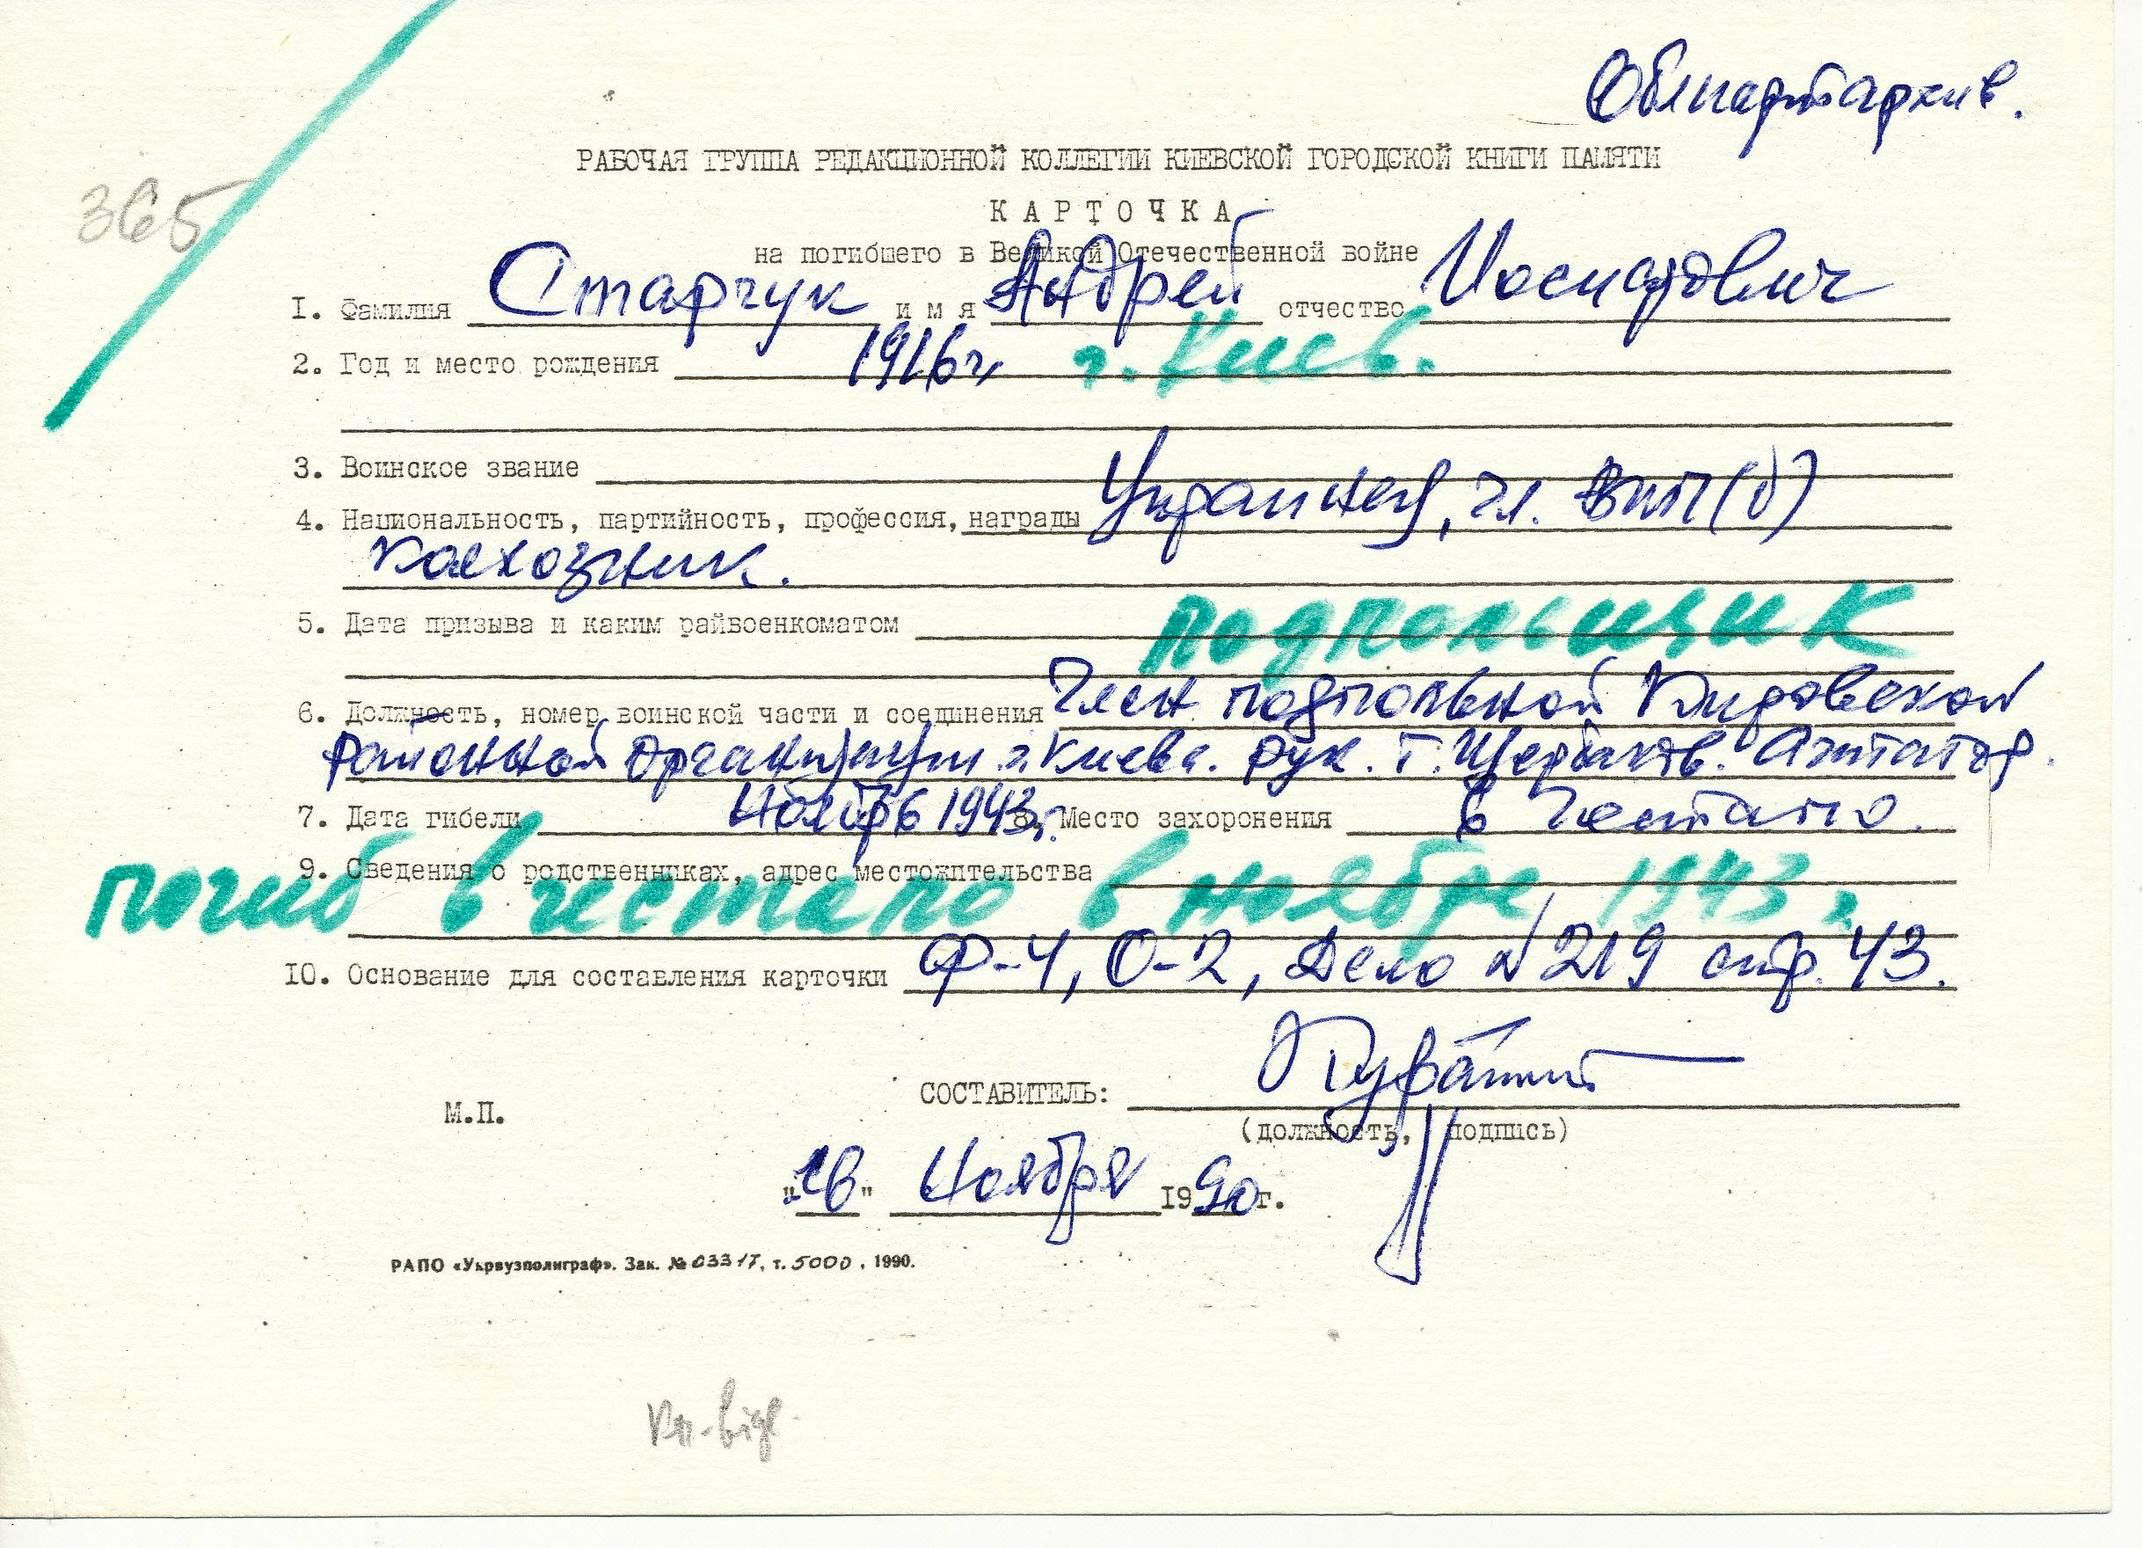 Облпартархив.
365
РАБОЧАЯ ГРУППА РЕДАКЦИОННОЙ КОЛЛЕГИИ КИЕВСКОЙ ГОРОДСКОЙ КНИГИ ПАМЯТИ
КАРТОЧКА
на погибшего в Великой Отечественной войне
1. Фамилия Старчук имя Андрей отчество Иосифович
2. Год и место рождения 1916 г. г. Киев.
3. Воинское звание
4. Национальность, партийность, профессия, награды Украинец, чл. ВКП(б)
колхозник.
5. Дата призыва и каким райвоенкоматом подпольщик
6. Должность, номер воинской части и соединения Член подпольной Кировской
районной организации г. Киева. рук. т. Щербаков. Агитатор.
7. Дата гибели Ноябрь 1943 г. 8. Место захоронения в Гестапо.
9. Сведения о родственниках, адрес местожительства
погиб в гестапо в ноябре 1943 г.
10. Основание для составления карточки Ф-4, О-2, Дело №219 стр. 43.
СОСТАВИТЕЛЬ:
М.П.
(должность, подпись)
" " Ноября 1990г.
РАПО «Укрвузполиграф». Зак. № 03317, т. 5000, 1990.